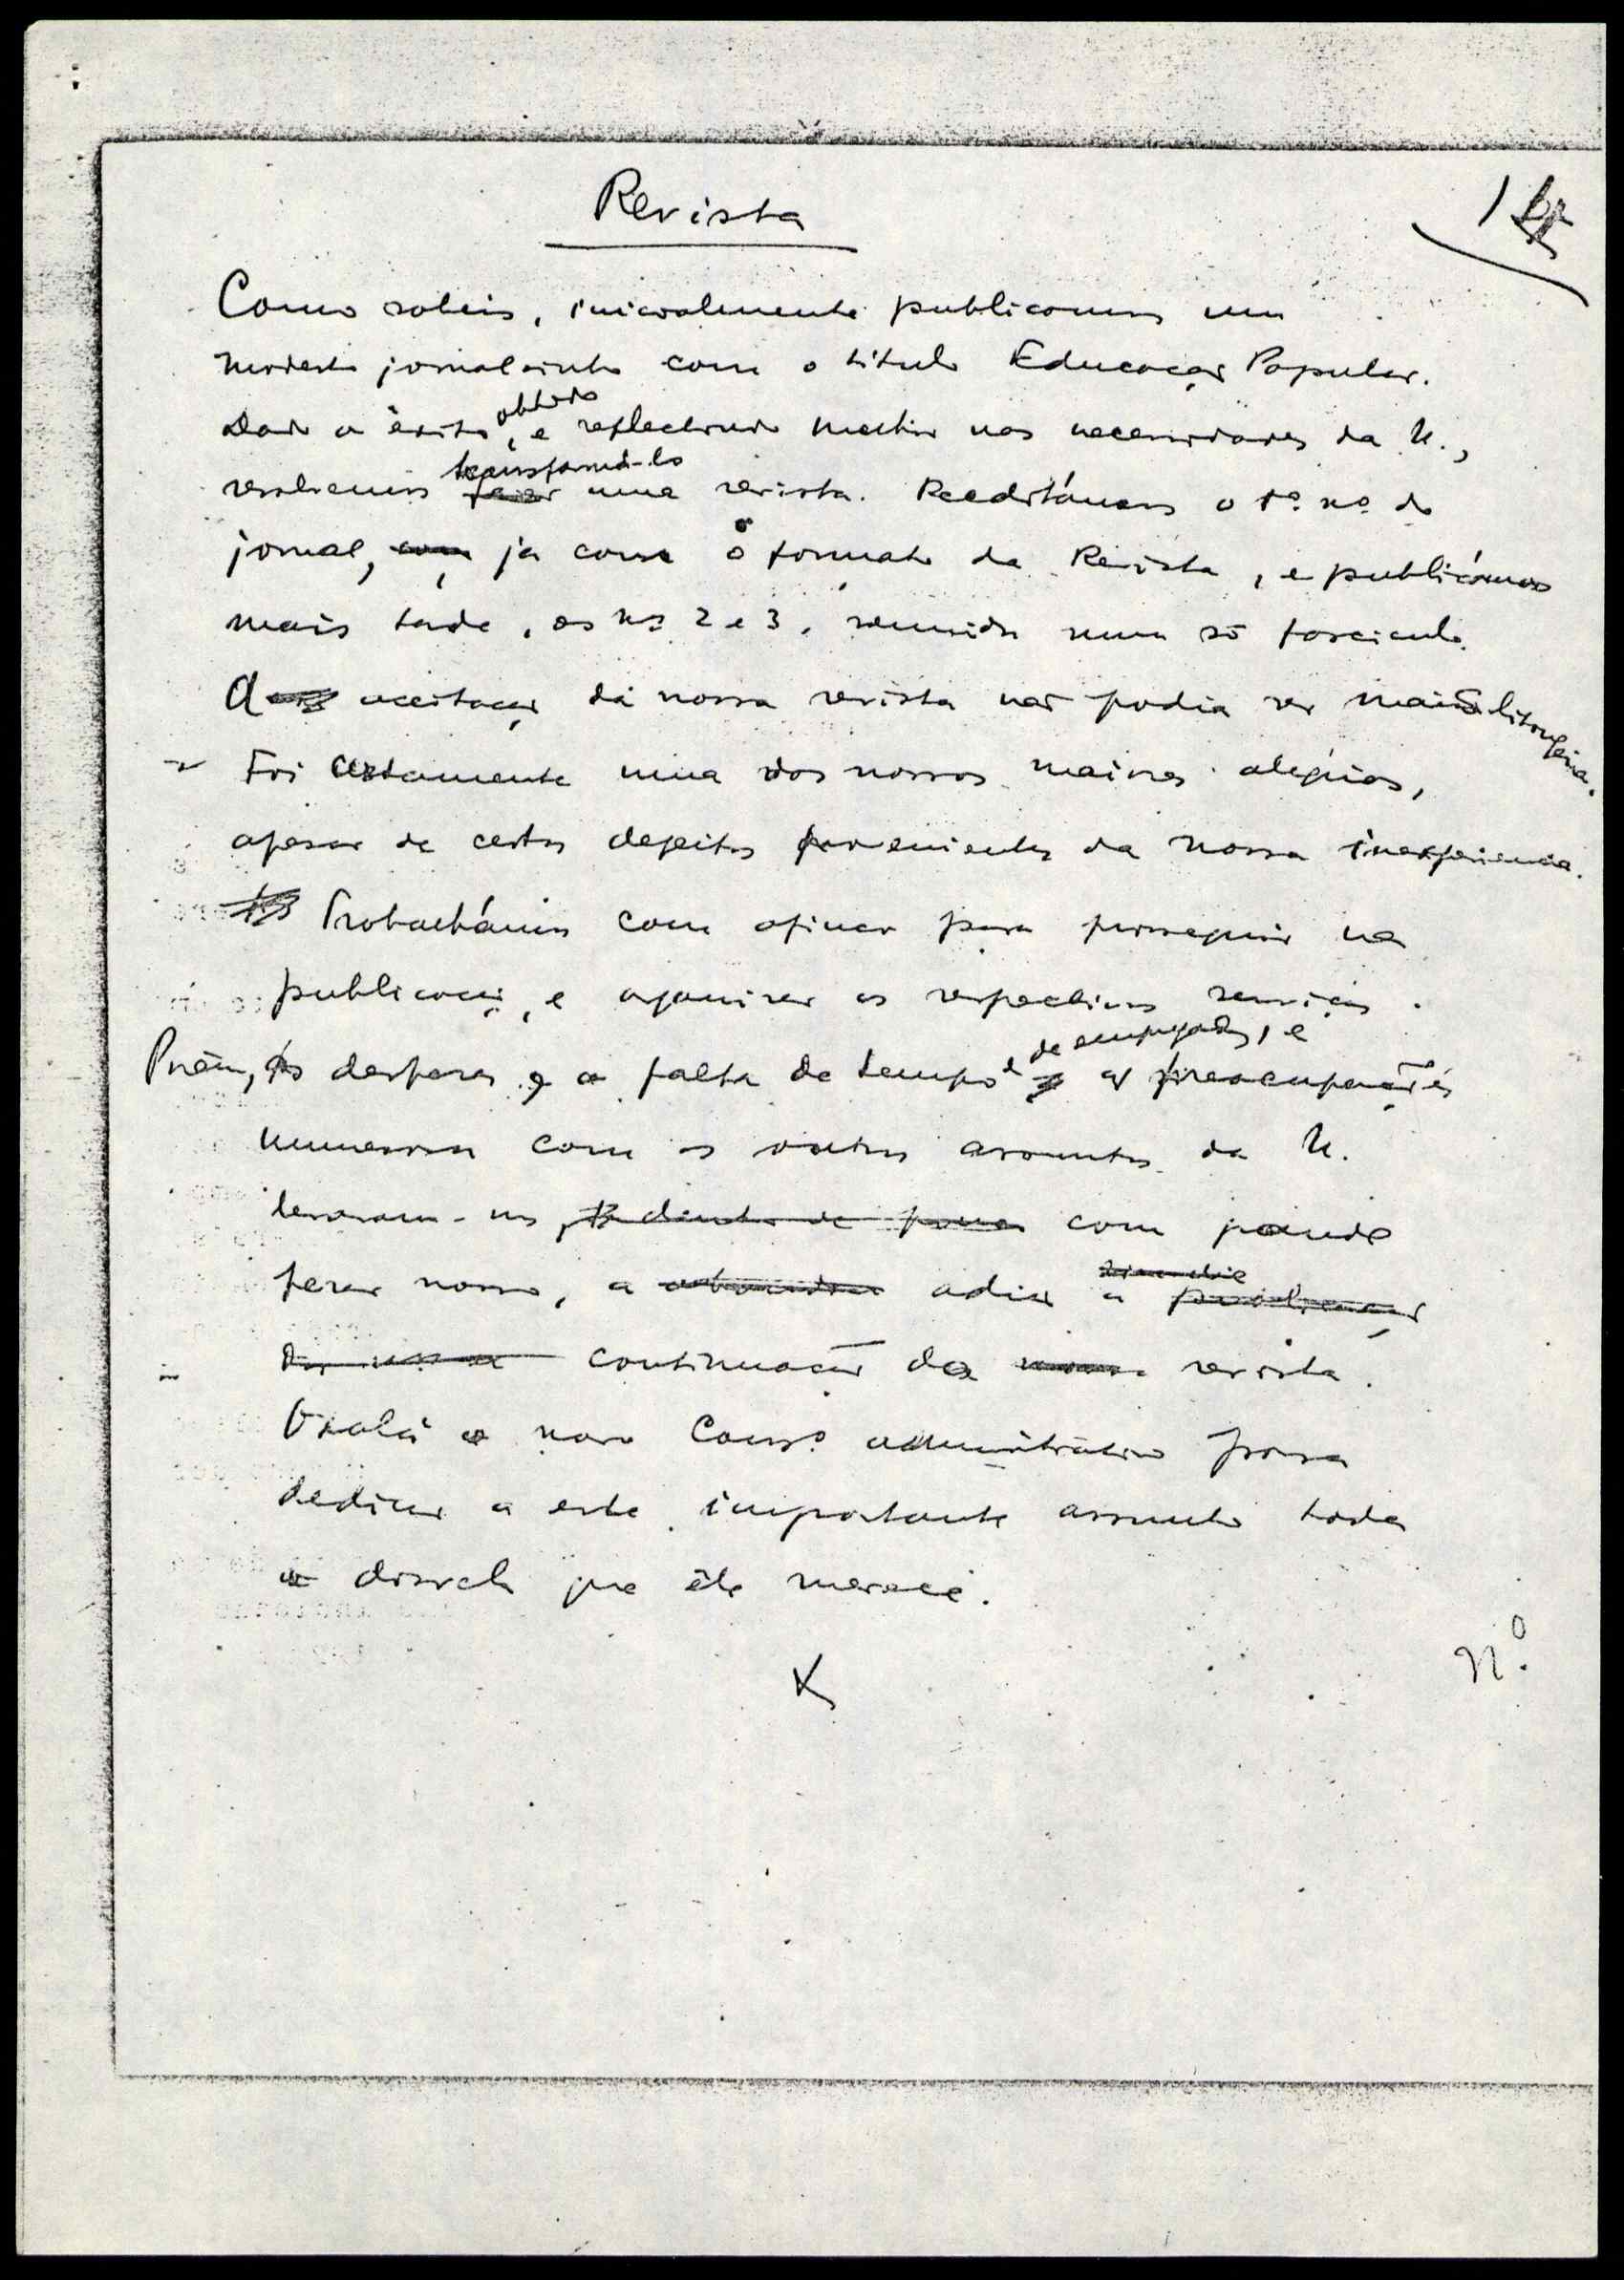 Revista
Como sabeis, inicialmente publicamos um
modesto jornalzinho com o titulo Educação Popular.
Dado o êxito obtido, e reflectindo melhor nas necessidades da U.,
resolvemos transformá-lo numa revista. Reeditámos o 1º. nº. do
jornal, já com o formato da Revista, e publicámos
mais tarde, os ns 2 e 3, reunidos num só fasciculo.
A aceitação da nossa revista não podia ser mais lisongeira.
Foi certamente uma das nossas maiores alegrias,
apesar de certos defeitos provenientes da nossa inexperiencia.
Trabalhámos com afinco para proseguir na
publicação, e organizar os respectivos serviços.
Porêm, as despesas e a falta de tempo e de empregados, e as preocupações
numerosas com os outros assuntos da U.
levaram-nos, com grande
pesar nosso, a adiar a
continuação da revista.
Oxalá o novo Consº. administrativo possa
dedicar a este importante assunto toda
a que êle merece.
Nº.